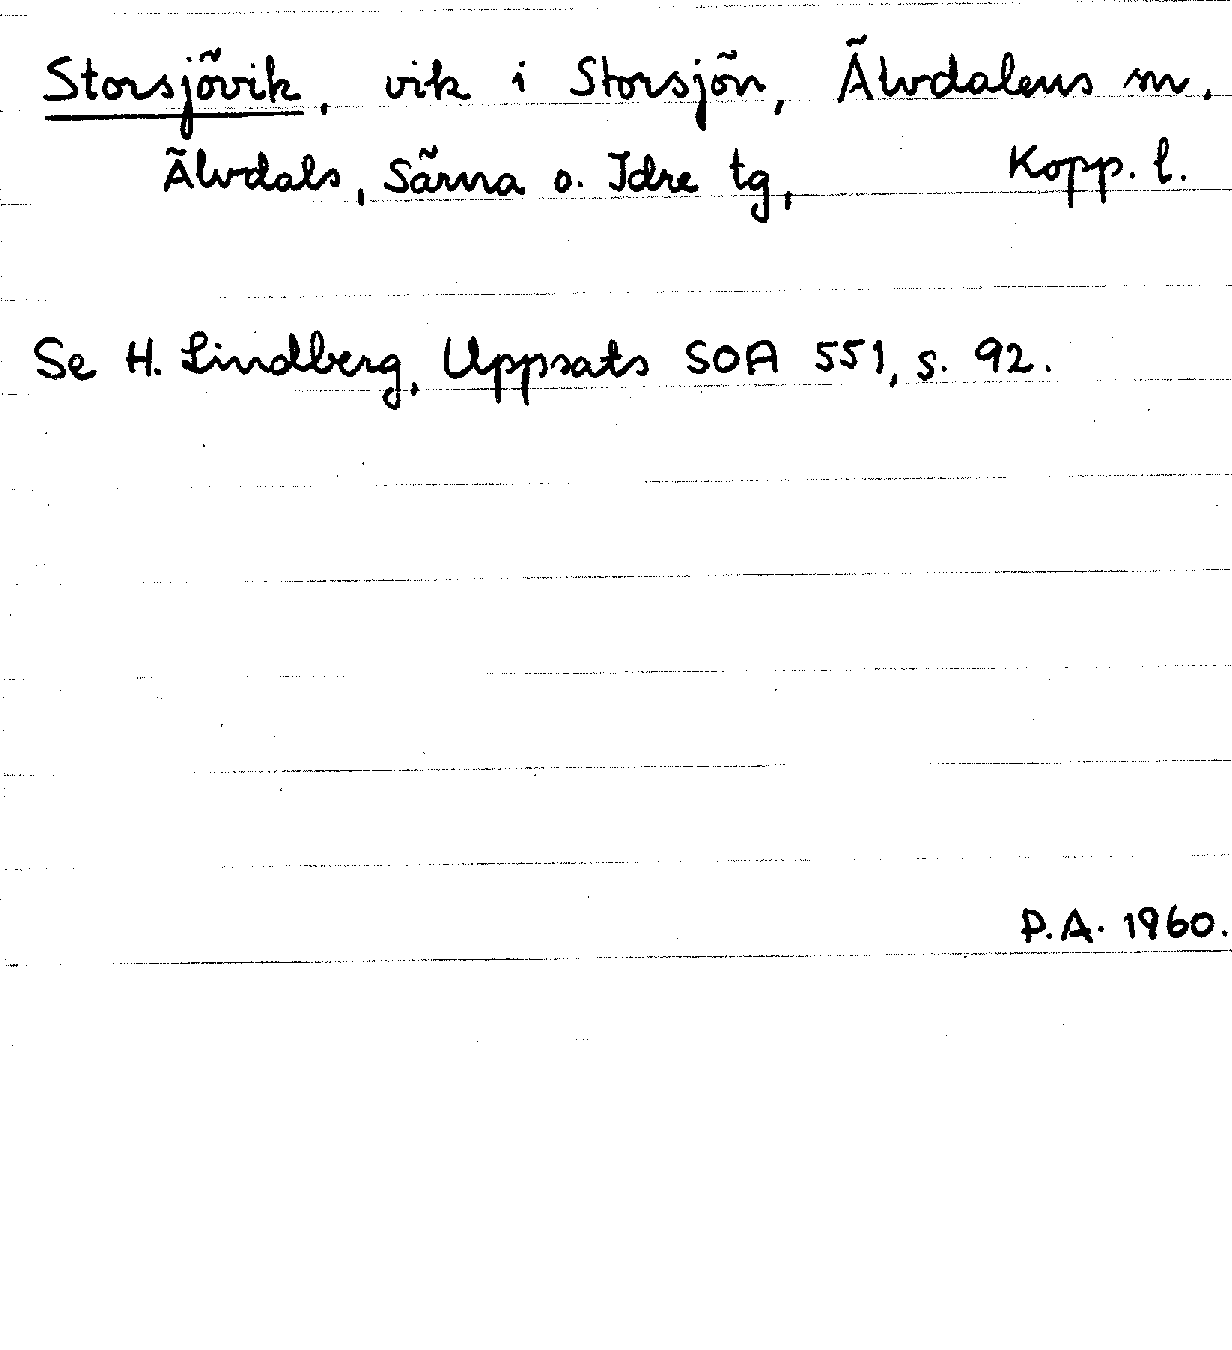 Storsjövik, vik i Storsjön, Älvdalens sn.
Älvdals, Särna o. Idre tg, Kopp. l.
Se H. Lindberg, Uppsats SOA 551, s. 92.
P.A. 1960.